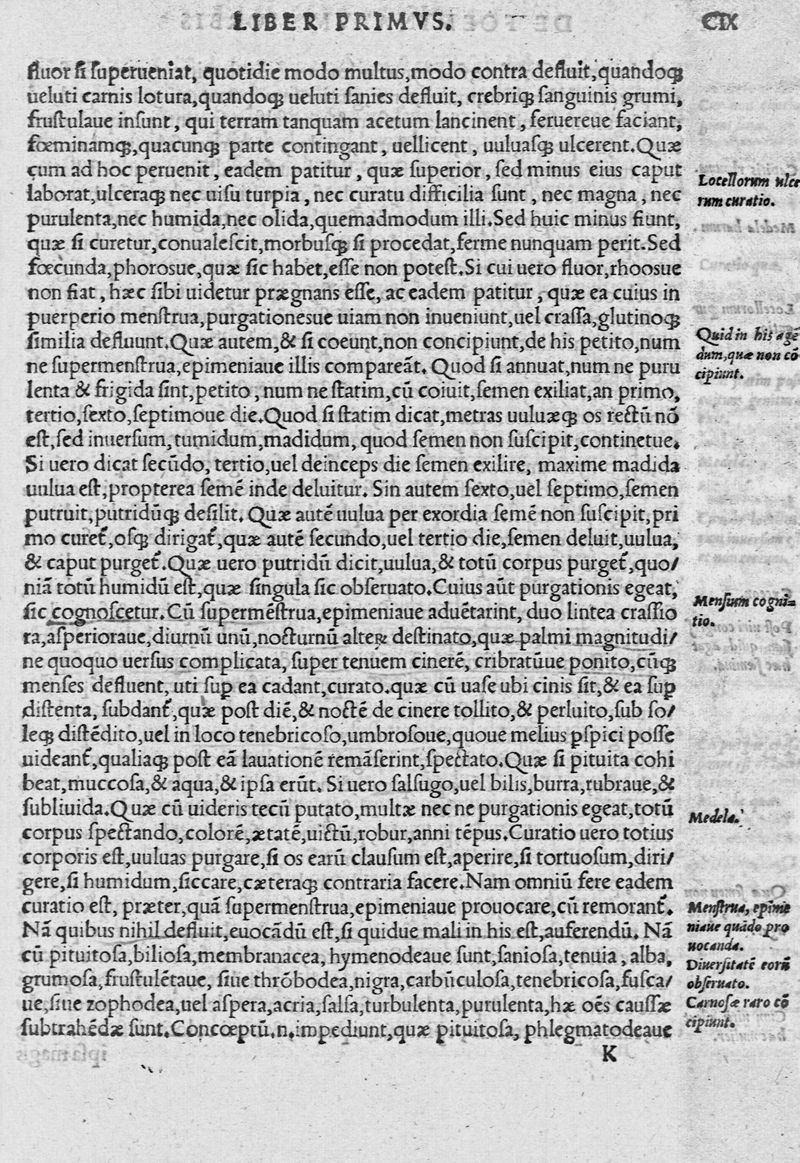 LIBER PRIMVS.
CIX
fluor ſi ſuperueniat, quotidie modo multus,modo contra defluit,quandoqꝫ
ueluti carnis lotura,quandoqꝫ ueluti ſanies defluit, crebriqꝫ ſanguinis grumi,
fruſtulaue inſunt, qui terram tanquam acetum lancinent, feruereue faciant,
fœminamqꝫ,quacunqꝫ parte contingant, uellicent, uuluaſqꝫ ulcerent.Quæ
cum ad hoc peruenit, eadem patitur, quæ ſuperior, ſed minus eius caput
laborat,ulceraqꝫ nec uiſu turpia, nec curatu difficilia ſunt, nec magna, nec
purulenta,nec humida,nec olida,quemadmodum illi.Sed huic minus fiunt,
quæ ſi curetur,conualeſcit,morbuſqꝫ ſi procedat,ferme nunquam perit.Sed
fœcunda,phoroſue,quæ ſic habet,eſſe non poteſt.Si cui uero fluor,rhooſue
non fiat, hæc ſibi uidetur prægnans eſſe, ac eadem patitur, quæ ea cuius in
puerperio menſtrua,purgationesue uiam non inueniunt,uel craſſa,glutinoqꝫ
ſimilia defluunt.Quæ autem,& ſi coeunt,non concipiunt,de his petito,num
ne ſupermenſtrua,epimeniaue illis compareāt. Quod ſi annuat,num ne puru
lenta & frigida ſint,petito, num ne ſtatim,cū coiuit,ſemen exiliat,an primo,
tertio,ſexto,ſeptimoue die.Quod ſi ſtatim dicat,metras uuluæqꝫ os rectū nō
eſt,ſed inuerſum,tumidum,madidum, quod ſemen non ſuſcipit,continetue.
Si uero dicat ſecūdo, tertio,uel deinceps die ſemen exilire, maxime madida
uulua eſt,propterea ſemē inde deluitur. Sin autem ſexto,uel ſeptimo,ſemen
putruit,putridūqꝫ deſilit. Quæ autē uulua per exordia ſemē non ſuſcipit,pri
mo curet̄,oſqꝫ dirigat̄,quæ autē ſecundo,uel tertio die,ſemen deluit,uulua,
& caput purget̄.Quæ uero putridū dicit,uulua,& totū corpus purget̄,quo/
niā totū humidū eſt,quæ ſingula ſic obſeruato.Cuius aūt purgationis egeat,
ſic cognoſcetur.Cū ſupermēſtrua,epimeniaue aduētarint, duo lintea craſſio
ra,aſperioraue,diurnū unū,nocturnū alteꝝ deſtinato,quæ palmi magnitudi/
ne quoquo uerſus complicata, ſuper tenuem cinerē, cribratūue ponito,cūqꝫ
menſes defluent, uti ſup ea cadant,curato.quæ cū uaſe ubi cinis ſit,& ea ſup
diſtenta, ſubdant̄,quæ poſt diē,& noctē de cinere tollito,& perluito,ſub ſo/
leqꝫ diſtēdito,uel in loco tenebricoſo,umbroſoue,quoue melius pſpici poſſe
uideant̄,qualiaqꝫ poſt eā lauationē remāſerint,ſpectato.Quæ ſi pituita cohi
beat,muccoſa,& aqua,& ipſa erūt. Si uero ſalſugo,uel bilis,burra,rubraue,&
ſubliuida.Quæ cū uideris tecū putato,multæ nec ne purgationis egeat,totū
corpus ſpectando,colorē,ætatē,uictū,robur,anni tēpus.Curatio uero totius
corporis eſt,uuluas purgare,ſi os earū clauſum eſt,aperire,ſi tortuoſum,diri/
gere,ſi humidum,ſiccare,cæteraqꝫ contraria facere.Nam omniū fere eadem
curatio eſt, præter,quā ſupermenſtrua,epimeniaue prouocare,cū remorant̄.
Nā quibus nihil defluit,euocādū eſt,ſi quidue mali in his eſt,auferendū. Nā
cū pituitoſa,bilioſa,membranacea, hymenodeaue ſunt,ſanioſa,tenuia, alba,
grumoſa,fruſtulētaue, ſiue thrōbodea,nigra,carbūculoſa,tenebricoſa,fuſca/
ue,ſiue zophodea,uel aſpera,acria,ſalſa,turbulenta,purulenta,hæ oēs cauſſæ
ſubtrahēdæ ſunt.Concœptū.n.impediunt,quæ pituitoſa, phlegmatodeaue
K
Locellorum ulce
rum curatio.
Quid in his agē
dum,quæ non cō
cipiunt.
Menſium cogni=
tio.
Medela.
Menſtrua, epime
niaue quādo pro
uocanda.
Diuerſitatē eorū
obſeruato.
Carnoſæ raro cō
cipiunt.